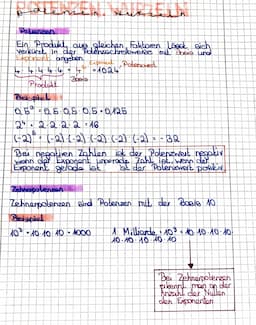 POTENZEN, WURZELN
Potenzen
Ein Produkt aus gleichen Faktoren lässt sich
verkürzt in der Potenzschreibweise mit Basis und
Exponent angeben.
Exponent Potenzwert
4 · 4 · 4 · 4 · 4 = 4⁵ = 1024
Produkt Basis
Beispiel
0,5³ = 0,5 · 0,5 · 0,5 = 0,125
2⁴ = 2 · 2 · 2 · 2 = 16
(-2)⁵ = (-2) · (-2) · (-2) · (-2) · (-2) = -32
Bei negativen Zahlen ist der Potenzwert negativ
wenn der Exponent ungerade Zahl ist, wenn der
Exponent gerade ist ist der Potenzwert positiv
Zehnerpotenzen
Zehnerpotenzen sind Potenzen mit der Basis 10
Beispiel
10³ = 10 · 10 · 10 = 1000 1 Milliarde = 10⁹ = 10 · 10 · 10 · 10 ·
10 · 10 · 10 · 10
Bei Zehnerpotenzen
erkennt man an der
Anzahl der Nullen
den Exponenten